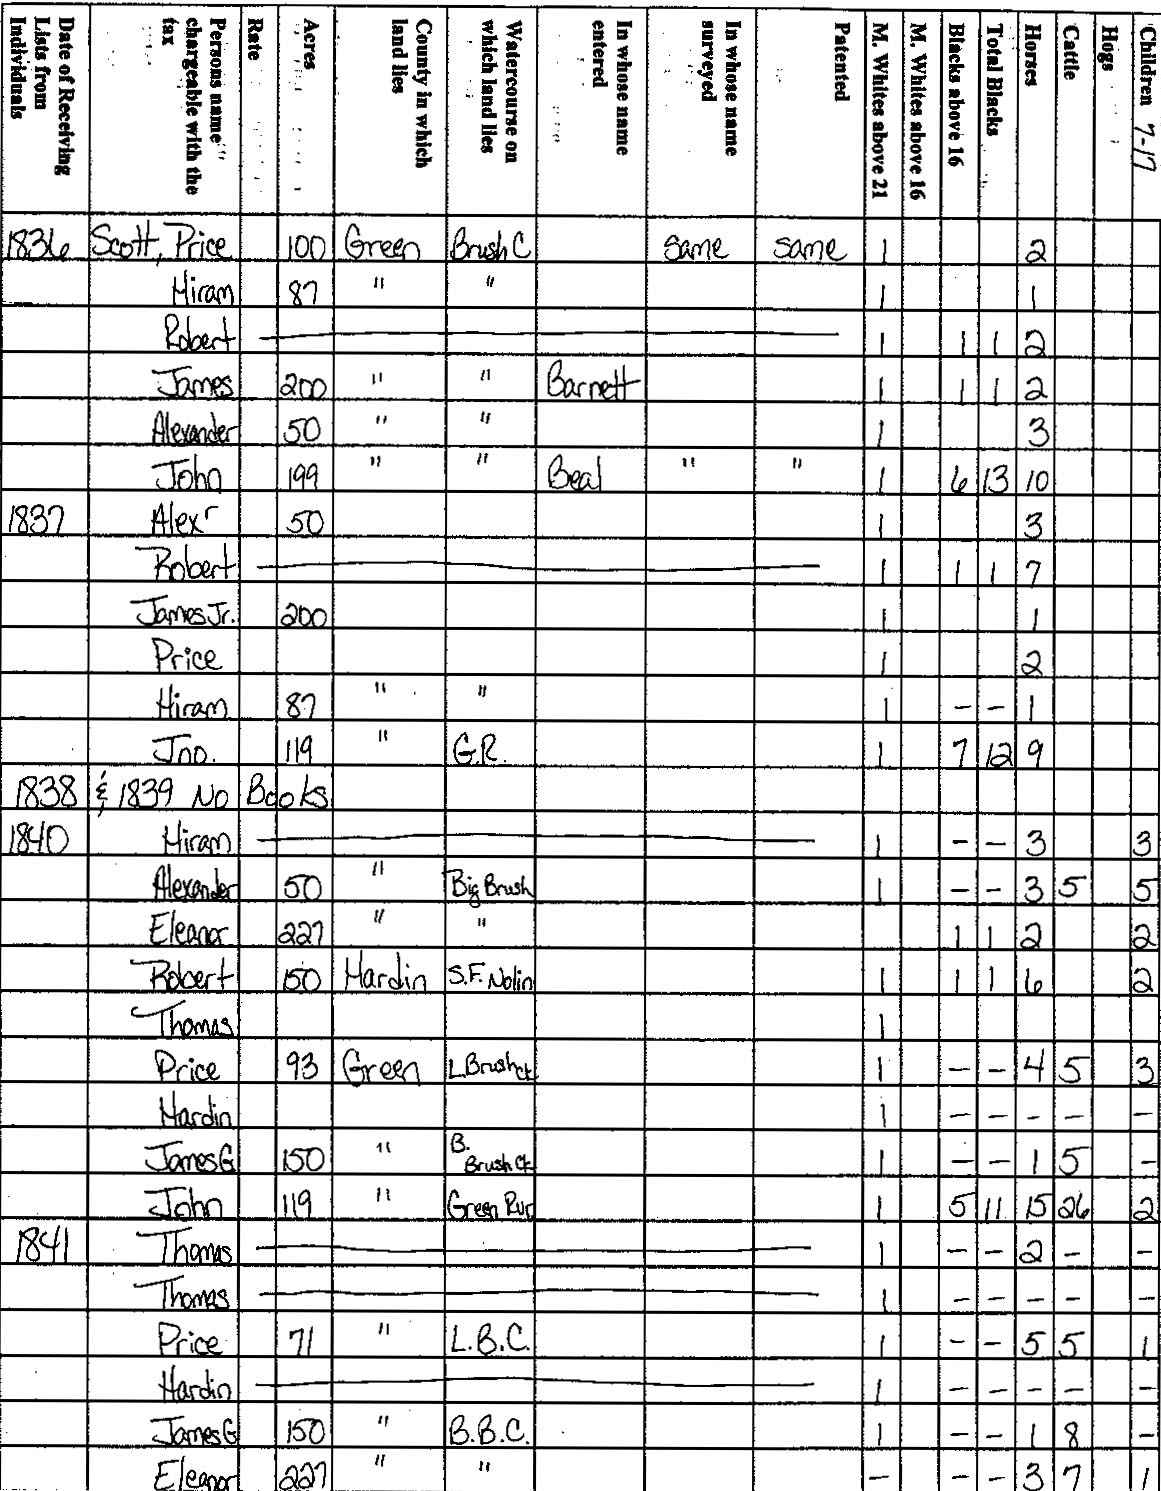 Date of Receiving Lists from Individuals | Persons name chargeable with the tax | Rate | Acres | County in which land lies | Watercourse on which land lies | In whose name entered | In whose name surveyed | Patented | M. Whites above 21 | M. Whites above 16 | Blacks above 16 | Total Blacks | Horses | Cattle | Hogs | Children 7-17
1836 Scott, Price 100 Green Brush C same same 1 2
Hiram 87 " " 1 1
Robert — 1 1 1 2
James 200 " " Barnett 1 1 1 2
Alexander 50 " " 1 3
John 199 " " Beal " " 1 6 13 10
1837 Alexr 50 1 3
Robert — 1 1 1 7
James Jr. 200 1 1
Price 1 2
Hiram 87 " " 1 - - 1
Jno. 119 " G.R. 1 7 12 9
1838 & 1839 No Books
1840 Hiram — 1 - - 3 3
Alexander 50 " Big Brush 1 - - 3 5 5
Eleanor 227 " " 1 1 2 2
Robert 150 Hardin S.F. Nolin 1 1 1 6 2
Thomas 1
Price 93 Green L. Brush Ck 1 - - 4 5 3
Hardin 1 - - - - -
James G 150 " B. Brush Ck 1 - - 1 5 -
John 119 " Green Rvr 1 5 11 15 26 2
1841 Thomas — 1 - - 2 - -
Thomas — 1 - - - - -
Price 71 " L.B.C. 1 - - 5 5 1
Hardin — 1 - - - - -
James G 150 " B.B.C. 1 - - 1 8 -
Eleanor 227 " " - - - 3 7 1